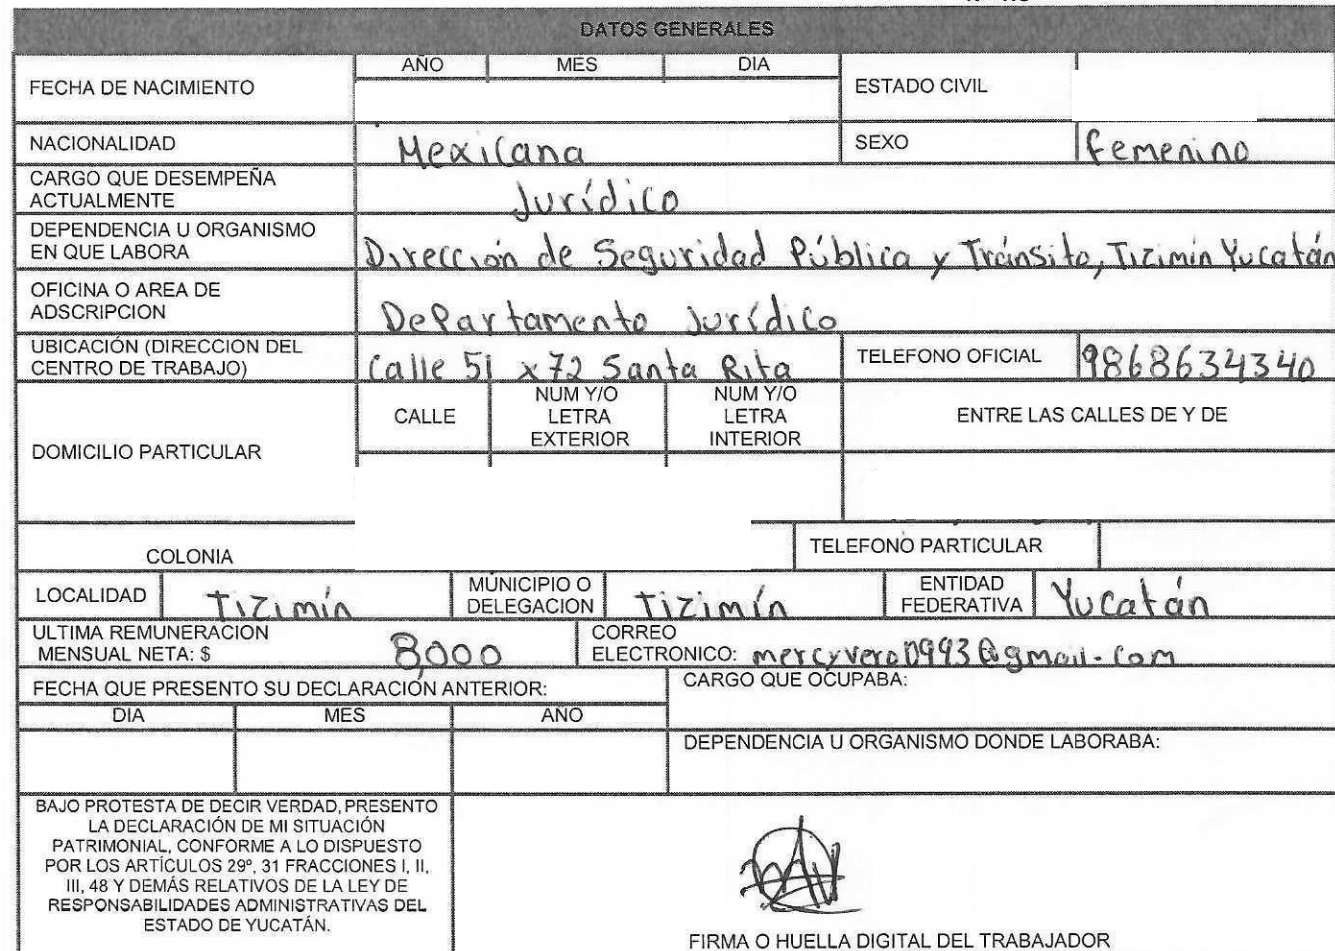 DATOS GENERALES
FECHA DE NACIMIENTO
AÑO MES DIA
ESTADO CIVIL
NACIONALIDAD Mexicana SEXO femenino
CARGO QUE DESEMPEÑA
ACTUALMENTE
Jurídico
DEPENDENCIA U ORGANISMO
EN QUE LABORA
Dirección de Seguridad Pública y Tránsito, Tizimín Yucatán
OFICINA O AREA DE
ADSCRIPCION
Departamento Jurídico
UBICACIÓN (DIRECCION DEL
CENTRO DE TRABAJO)
Calle 51 x 72 Santa Rita
TELEFONO OFICIAL 9868634340
DOMICILIO PARTICULAR
CALLE
NUM Y/O
LETRA
EXTERIOR
NUM Y/O
LETRA
INTERIOR
ENTRE LAS CALLES DE Y DE
COLONIA
TELEFONO PARTICULAR
LOCALIDAD Tizimín
MUNICIPIO O
DELEGACION
Tizimín
ENTIDAD
FEDERATIVA
Yucatán
ULTIMA REMUNERACION
MENSUAL NETA: $ 8,000
CORREO
ELECTRONICO: mercyvero0993@gmail.com
FECHA QUE PRESENTO SU DECLARACIÓN ANTERIOR:
DIA MES AÑO
CARGO QUE OCUPABA:
DEPENDENCIA U ORGANISMO DONDE LABORABA:
BAJO PROTESTA DE DECIR VERDAD, PRESENTO
LA DECLARACIÓN DE MI SITUACIÓN
PATRIMONIAL, CONFORME A LO DISPUESTO
POR LOS ARTÍCULOS 29º, 31 FRACCIONES I, II,
III, 48 Y DEMÁS RELATIVOS DE LA LEY DE
RESPONSABILIDADES ADMINISTRATIVAS DEL
ESTADO DE YUCATÁN.
FIRMA O HUELLA DIGITAL DEL TRABAJADOR